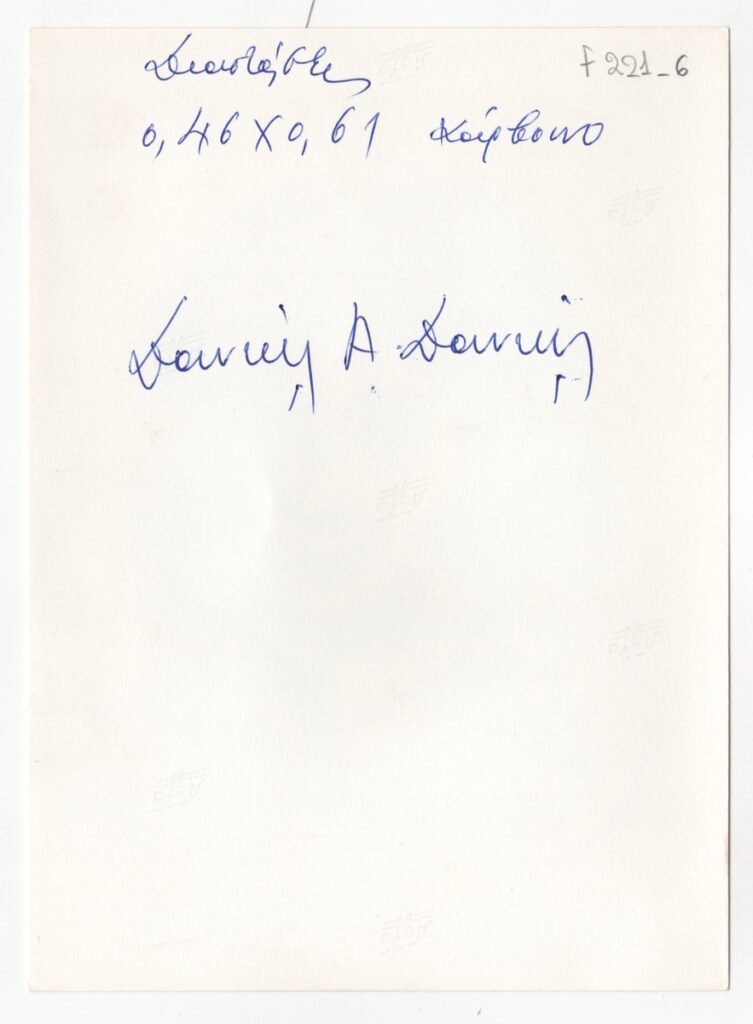 Διαστάσεις F 221_6
0,46 Χ 0,61 κάρβουνο
Δανιήλ Α. Δανιήλ